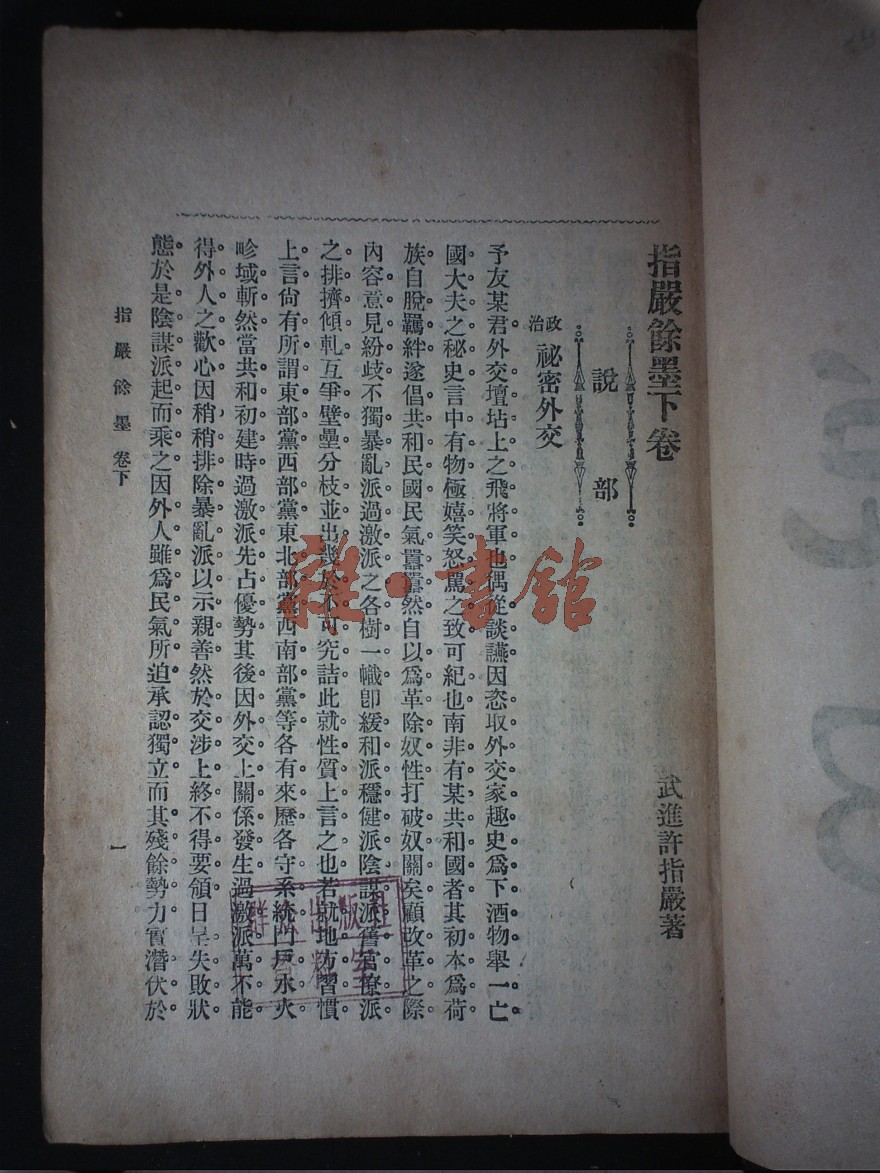 指嚴餘墨下卷
武進許指嚴著
說部
政治
祕密外交
予友某君外交壇坫上之飛將軍也偶從談讌因恣取外交家趣史爲下酒物舉一亡
國大夫之秘史言中有物極嬉笑怒罵之致可紀也南非有某共和國者其初本爲荷
族自脫羈絆遂倡共和民國民氣囂囂然自以爲革除奴性打破奴關矣顧改革之際
內容意見紛歧不獨暴亂派過激派之各樹一幟卽緩和派穩健派陰謀派舊官僚派
之排擠傾軋互爭壁壘分枝並出幾於不可究詰此就性質上言之也若就地方習慣
上言尙有所謂東部黨西部黨東北部黨西南部黨等各有來歷各守系統門戶永夾
畛域斬然當共和初建時過激派先占優勢其後因外交上關係發生過激派萬不能
得外人之歡心因稍稍排除暴亂派以示親善然於交涉上終不得要領日呈失敗狀
態於是陰謀派起而乘之因外人雖爲民氣所迫承認獨立而其殘餘勢力實潛伏於
指嚴餘墨 卷下
一
雜·書館